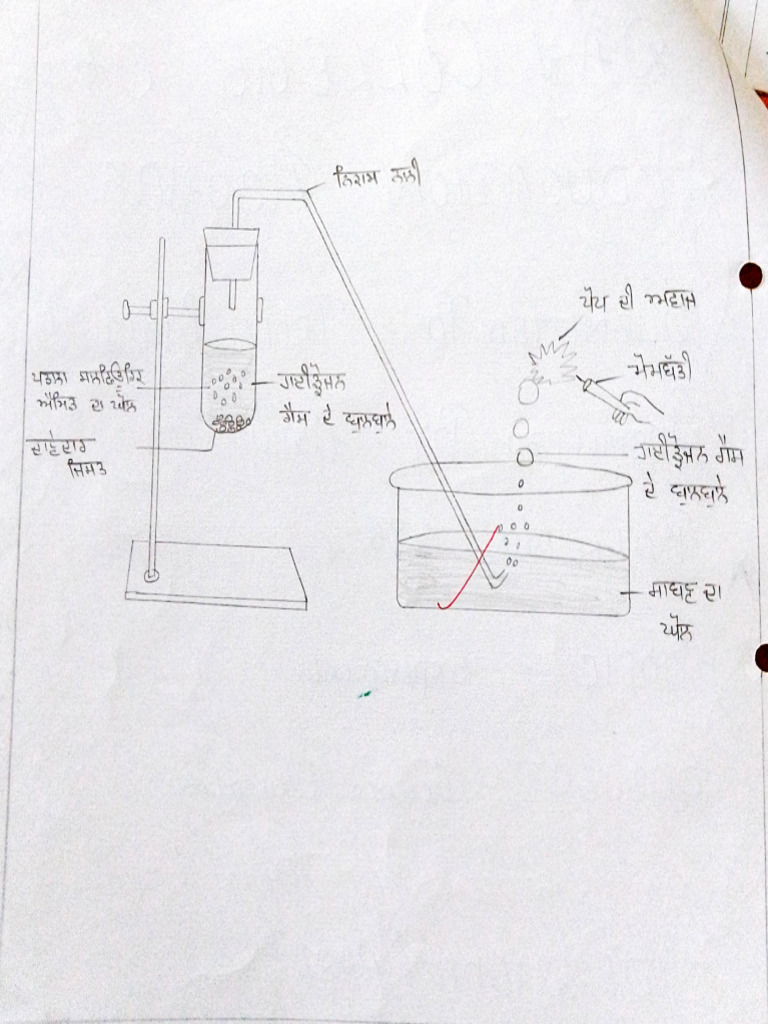 ਨਿਕਾਸ ਨਲੀ
ਪੌਪ ਦੀ ਅਵਾਜ
ਮੋਮਬੱਤੀ
ਪਤਲਾ ਸਲਫਿਊਰਿਕ
ਐਸਿਡ ਦਾ ਘੋਲ
ਹਾਈਡ੍ਰੋਜਨ
ਗੈਸ ਦੇ ਬੁਲਬੁਲੇ
ਦਾਣੇਦਾਰ
ਜਿਸਤ
ਹਾਈਡ੍ਰੋਜਨ ਗੈਸ
ਦੇ ਬੁਲਬੁਲੇ
ਸਾਬਣ ਦਾ
ਘੋਲ